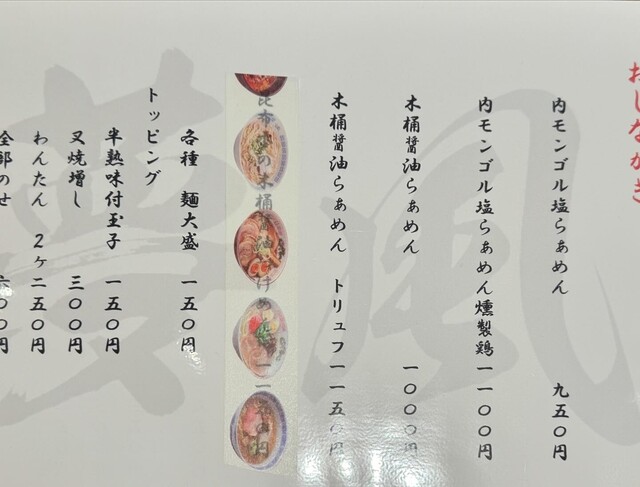 おしながき
内モンゴル塩らぁめん 九五〇円
内モンゴル塩らぁめん燻製鶏 一一〇〇円
木桶醤油らぁめん 一〇〇〇円
木桶醤油らぁめん トリュフ 一一五〇円
昆布水の木桶醤油つけめん 一一五〇円
各種 麺大盛 一五〇円
トッピング
半熟味付玉子 一五〇円
叉焼増し 三〇〇円
わんたん 2ヶ 二五〇円
全部のせ 六〇〇円
夢風